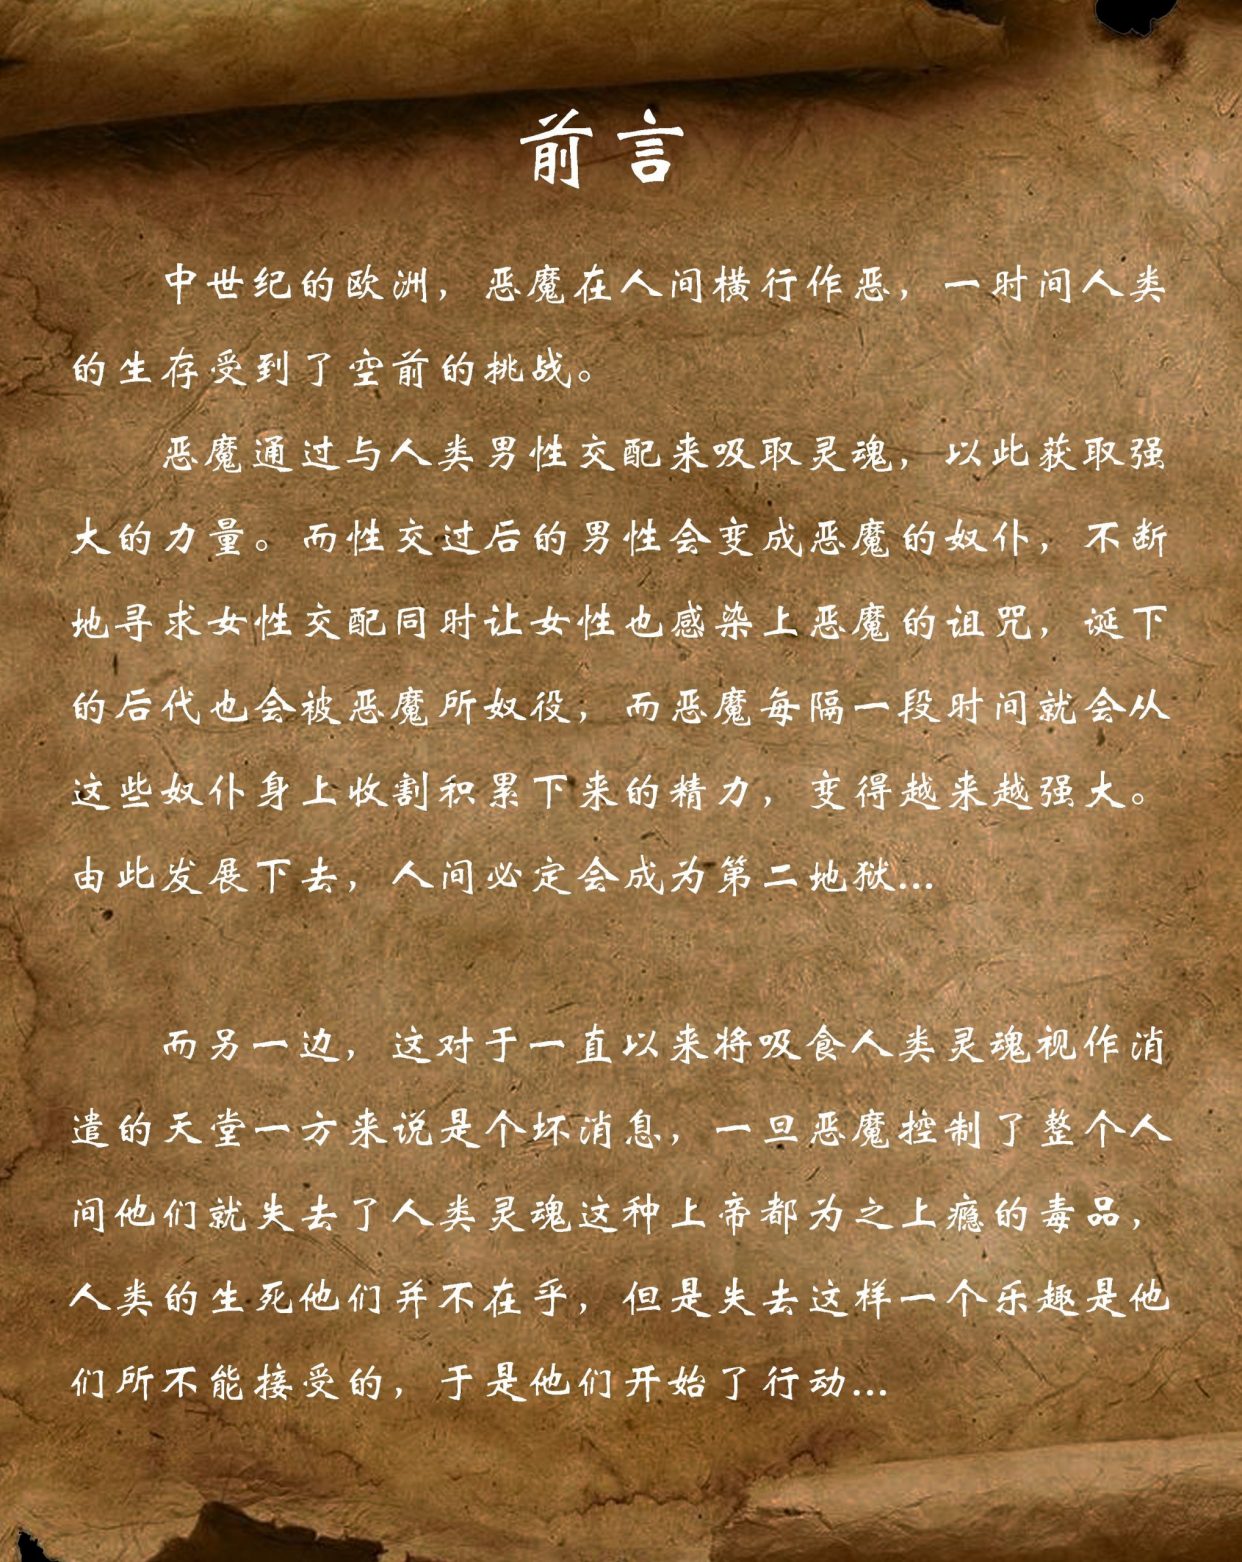 前言
中世纪的欧洲，恶魔在人间横行作恶，一时间人类
的生存受到了空前的挑战。
恶魔通过与人类男性交配来吸取灵魂，以此获取强
大的力量。而性交过后的男性会变成恶魔的奴仆，不断
地寻求女性交配同时让女性也感染上恶魔的诅咒，诞下
的后代也会被恶魔所奴役，而恶魔每隔一段时间就会从
这些奴仆身上收割积累下来的精力，变得越来越强大。
由此发展下去，人间必定会成为第二地狱...
而另一边，这对于一直以来将吸食人类灵魂视作消
遣的天堂一方来说是个坏消息，一旦恶魔控制了整个人
间他们就失去了人类灵魂这种上帝都为之上瘾的毒品，
人类的生死他们并不在乎，但是失去这样一个乐趣是他
们所不能接受的，于是他们开始了行动...